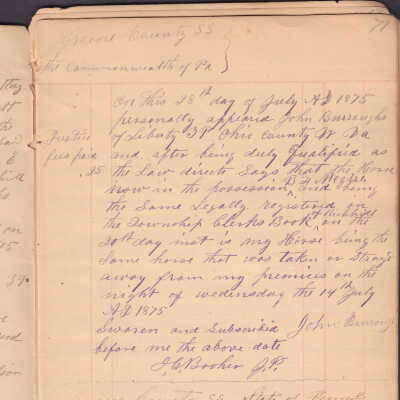 71
Greene County SS
the Commonwealth of Pa }
On this 28th day of July AD 1875
personally appeared John Burroughs
of Liberty Ohio County W Va
Justice
fees paid
.25
and after being duly Qualified as
the Law directs Says that the Horse
now in the possession and being
the Same Legally registered on
the Township Clerks Book on the
day inst is my Horse being the
Same horse that was taken or Strayed
away from my premices on the
night of wedensday the 14th July
AD 1875
Sworen and Subscribed John Burroughs
before me the above date
J.P.
County SS State of